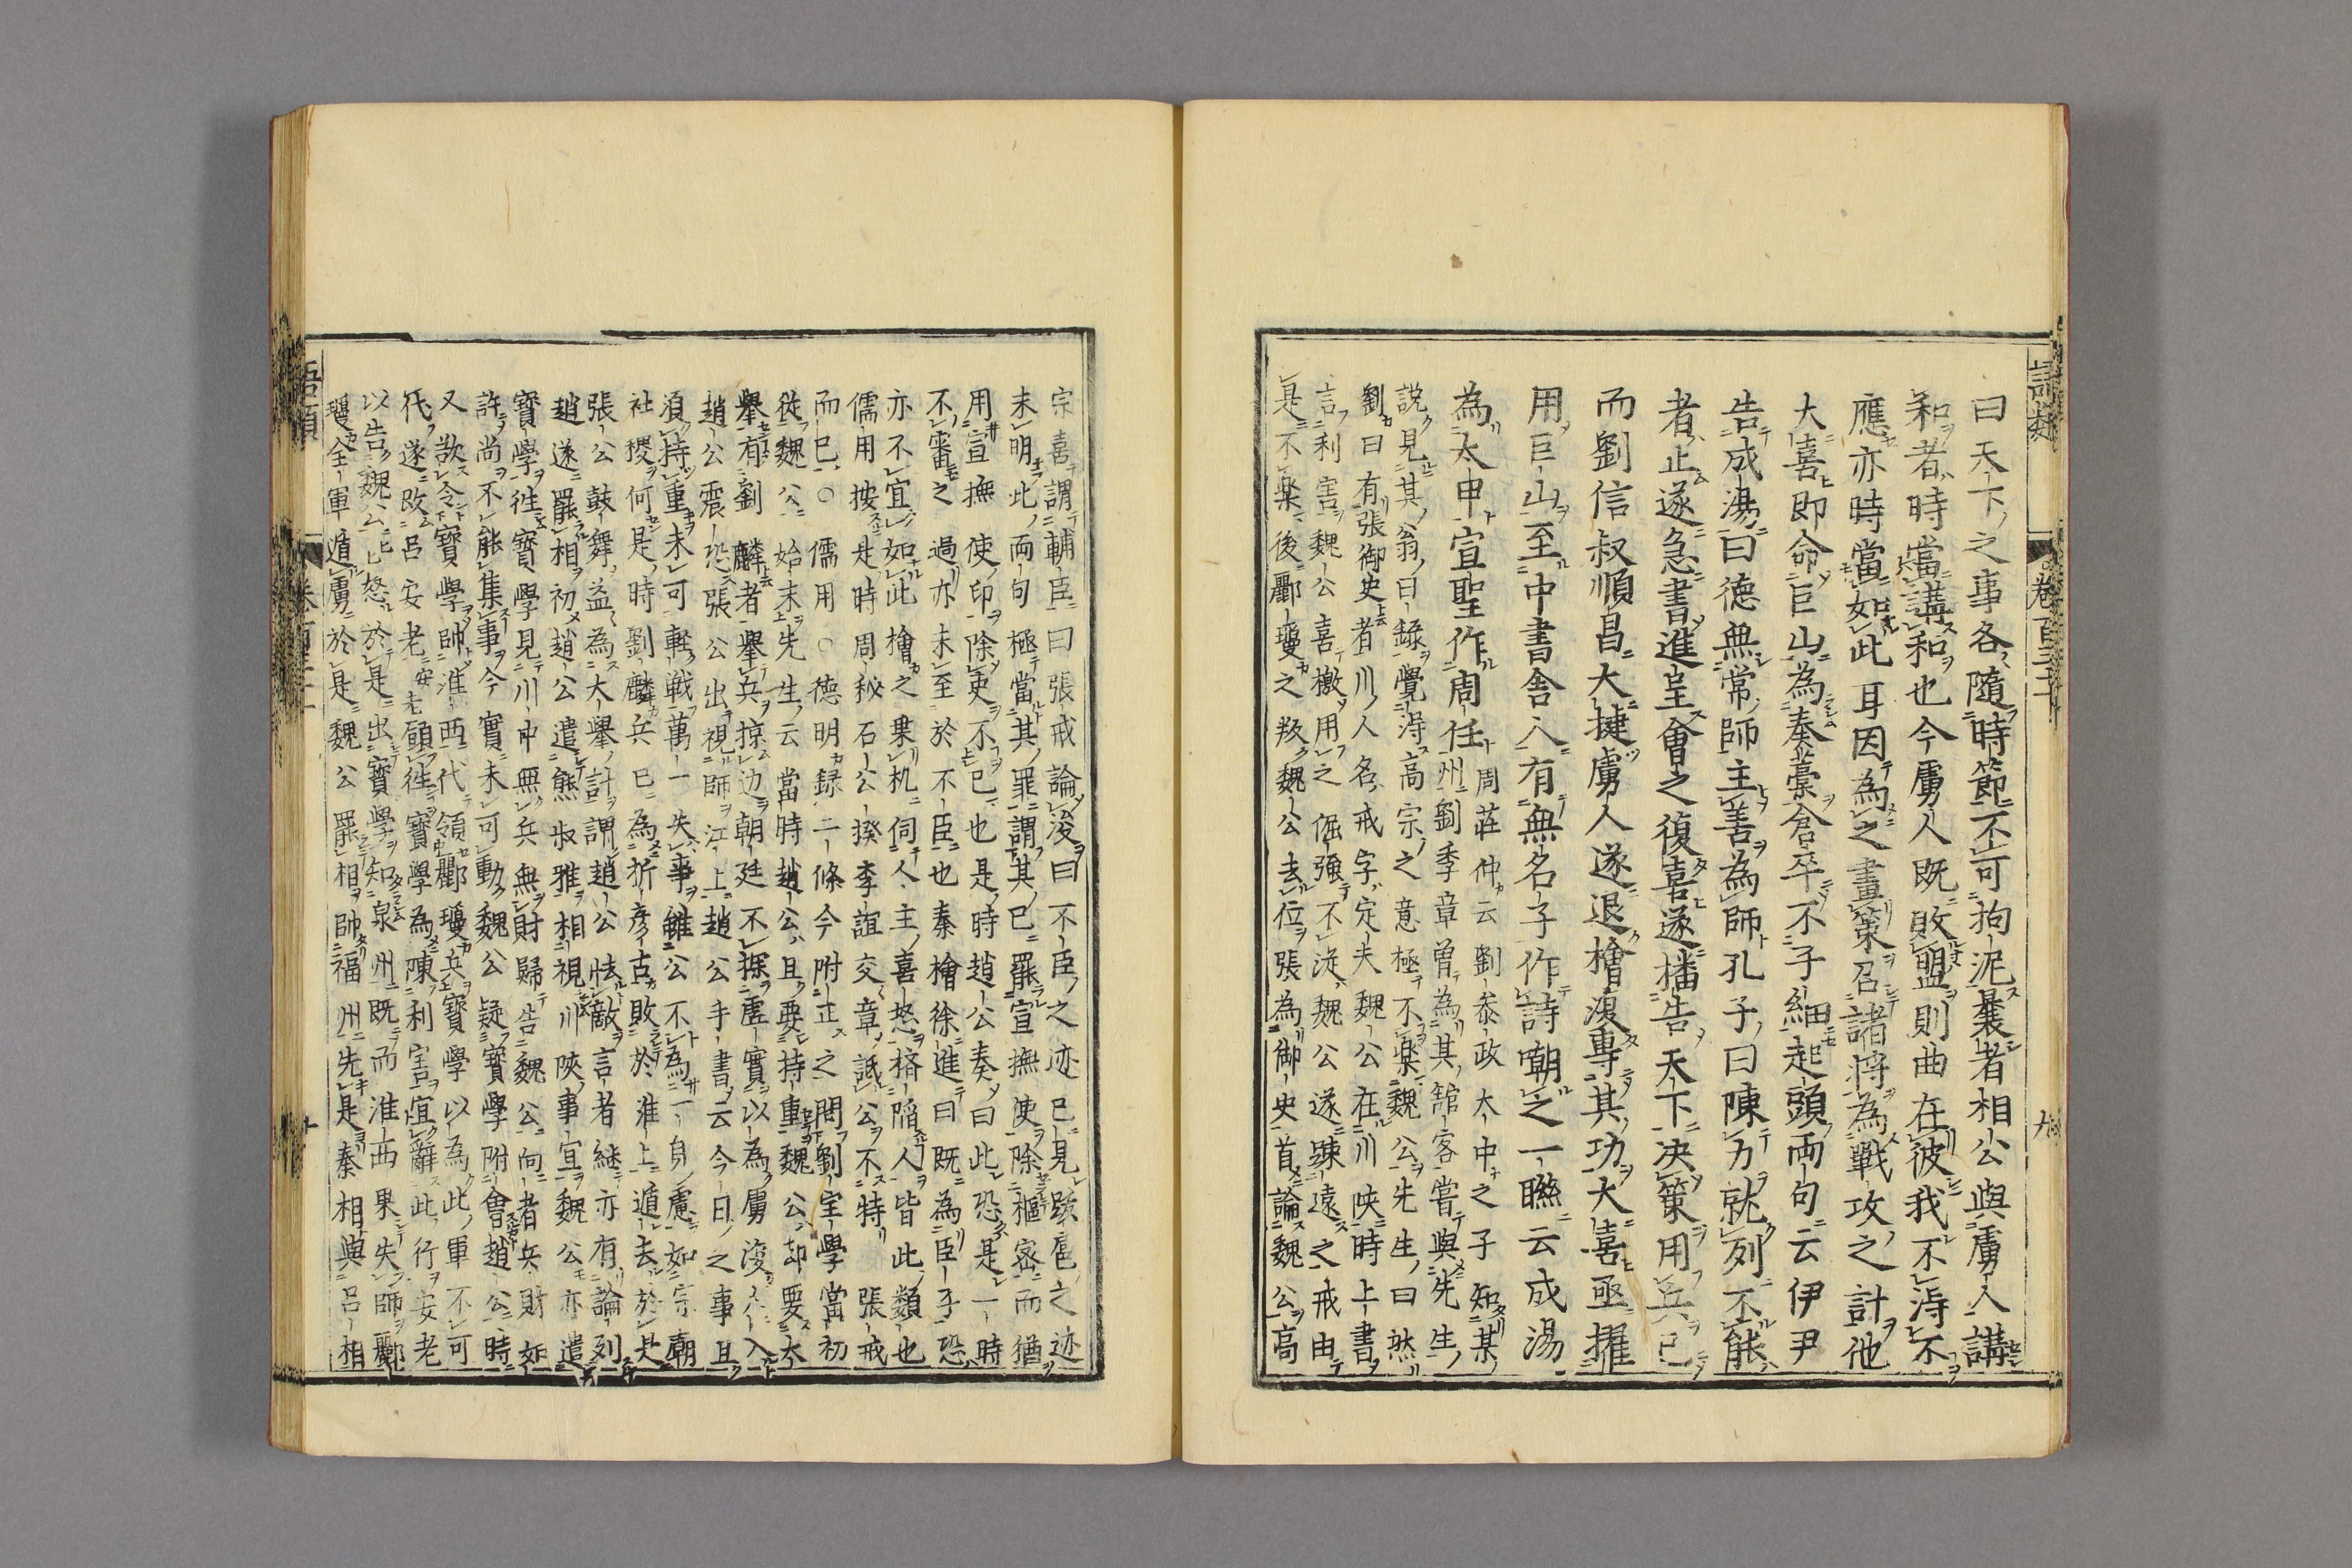 語類
卷百三十一
九
曰天下之事各隨時節不可拘泥曩者相公與虜人講
和者時當講和也今虜人既敗盟則曲在彼我不得不
應亦時當如此耳因為之畫策召諸將為戰攻之計他
大喜即命巨山為奏藁倉卒不子細起頭兩句云伊尹
告成湯曰德無常師主善為師孔子曰陳力就列不能
者止遂急書進呈會之復喜遂播告天下決策用兵已
而劉信叔順昌大捷虜人遂退檜復專其功大喜亟擢
用巨山至中書舍人有無名子作詩嘲之一聯云成湯
為太甲宣聖作周任
周莊仲云劉參政太中之子知某
州劉季章曾為其舘客嘗與先生
說見其翁曰錄覺得高宗之意極不樂魏公先生曰然
劉曰有張御史者川人名戒字定夫魏公在川陝時上書
言利害魏公喜檄用之倔強不從魏公遂踈遠之戒由
是不樂後酈瓊之叛魏公去位張為御史首論魏公高
宗喜謂輔臣曰張戒論浚曰不臣之迹已見跋扈之迹
未明此兩句極當其罪謂其已罷宣撫使除樞密而猶
用宣撫使印除吏不已也是時趙公奏曰此恐是一時
不審之過亦未至於不臣也秦檜徐進曰既為臣子恐
亦不宜如此檜之乗机伺人主喜怒擠陷人皆此類也
儒用按是時周秘石公揆李誼交章詆公不特張戒
而已○儒用○德明録二條今附正之問劉宝學當初
從魏公始末先生云當時趙公且要持重魏公却要大
舉有劉麟者舉兵掠边朝廷不探虚實以為虜浚入
趙公震恐張公出視師江上趙公手書云今日之事且
須持重未可輕戰萬一失事雖公不為一身慮如宗廟
社稷何是時劉麟兵已為折彦古敗於淮上遁去於是
張公鼓舞益為大舉計謂趙公怯敵言者継亦有論列
趙遂罷相初趙公遣熊叔雅相視川陝事宜魏公亦遣
寳學往寳學見川中無兵無財歸告魏公向者兵財如
許尚不能集事今實未可動魏公疑寳學附會趙公時
又欲令寳學帥淮西代領酈瓊兵寳學以為此軍不可
代遂改呂安老安老願往寳學為陳利害宜辭此行安老
以告魏公公怒於是出寳學知泉州既而淮西果失師酈
瓊全軍遁虜於是魏公罷相帥福州先是秦相與呂相
語類
卷百三十一
十